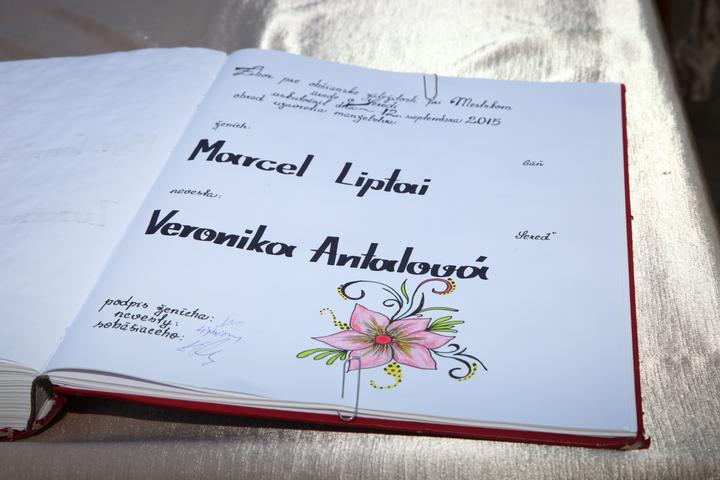 Zbor pre občianske záležitosti pri Mestskom
úrade v Seredi
obrad uskutočnil dňa 12. septembra 2015
uzavretia manželstva
ženích:
Marcel Liptai
Báň
nevesta:
Sereď
Veronika Antalová
podpis ženícha:
nevesty:
sobášiaceho: